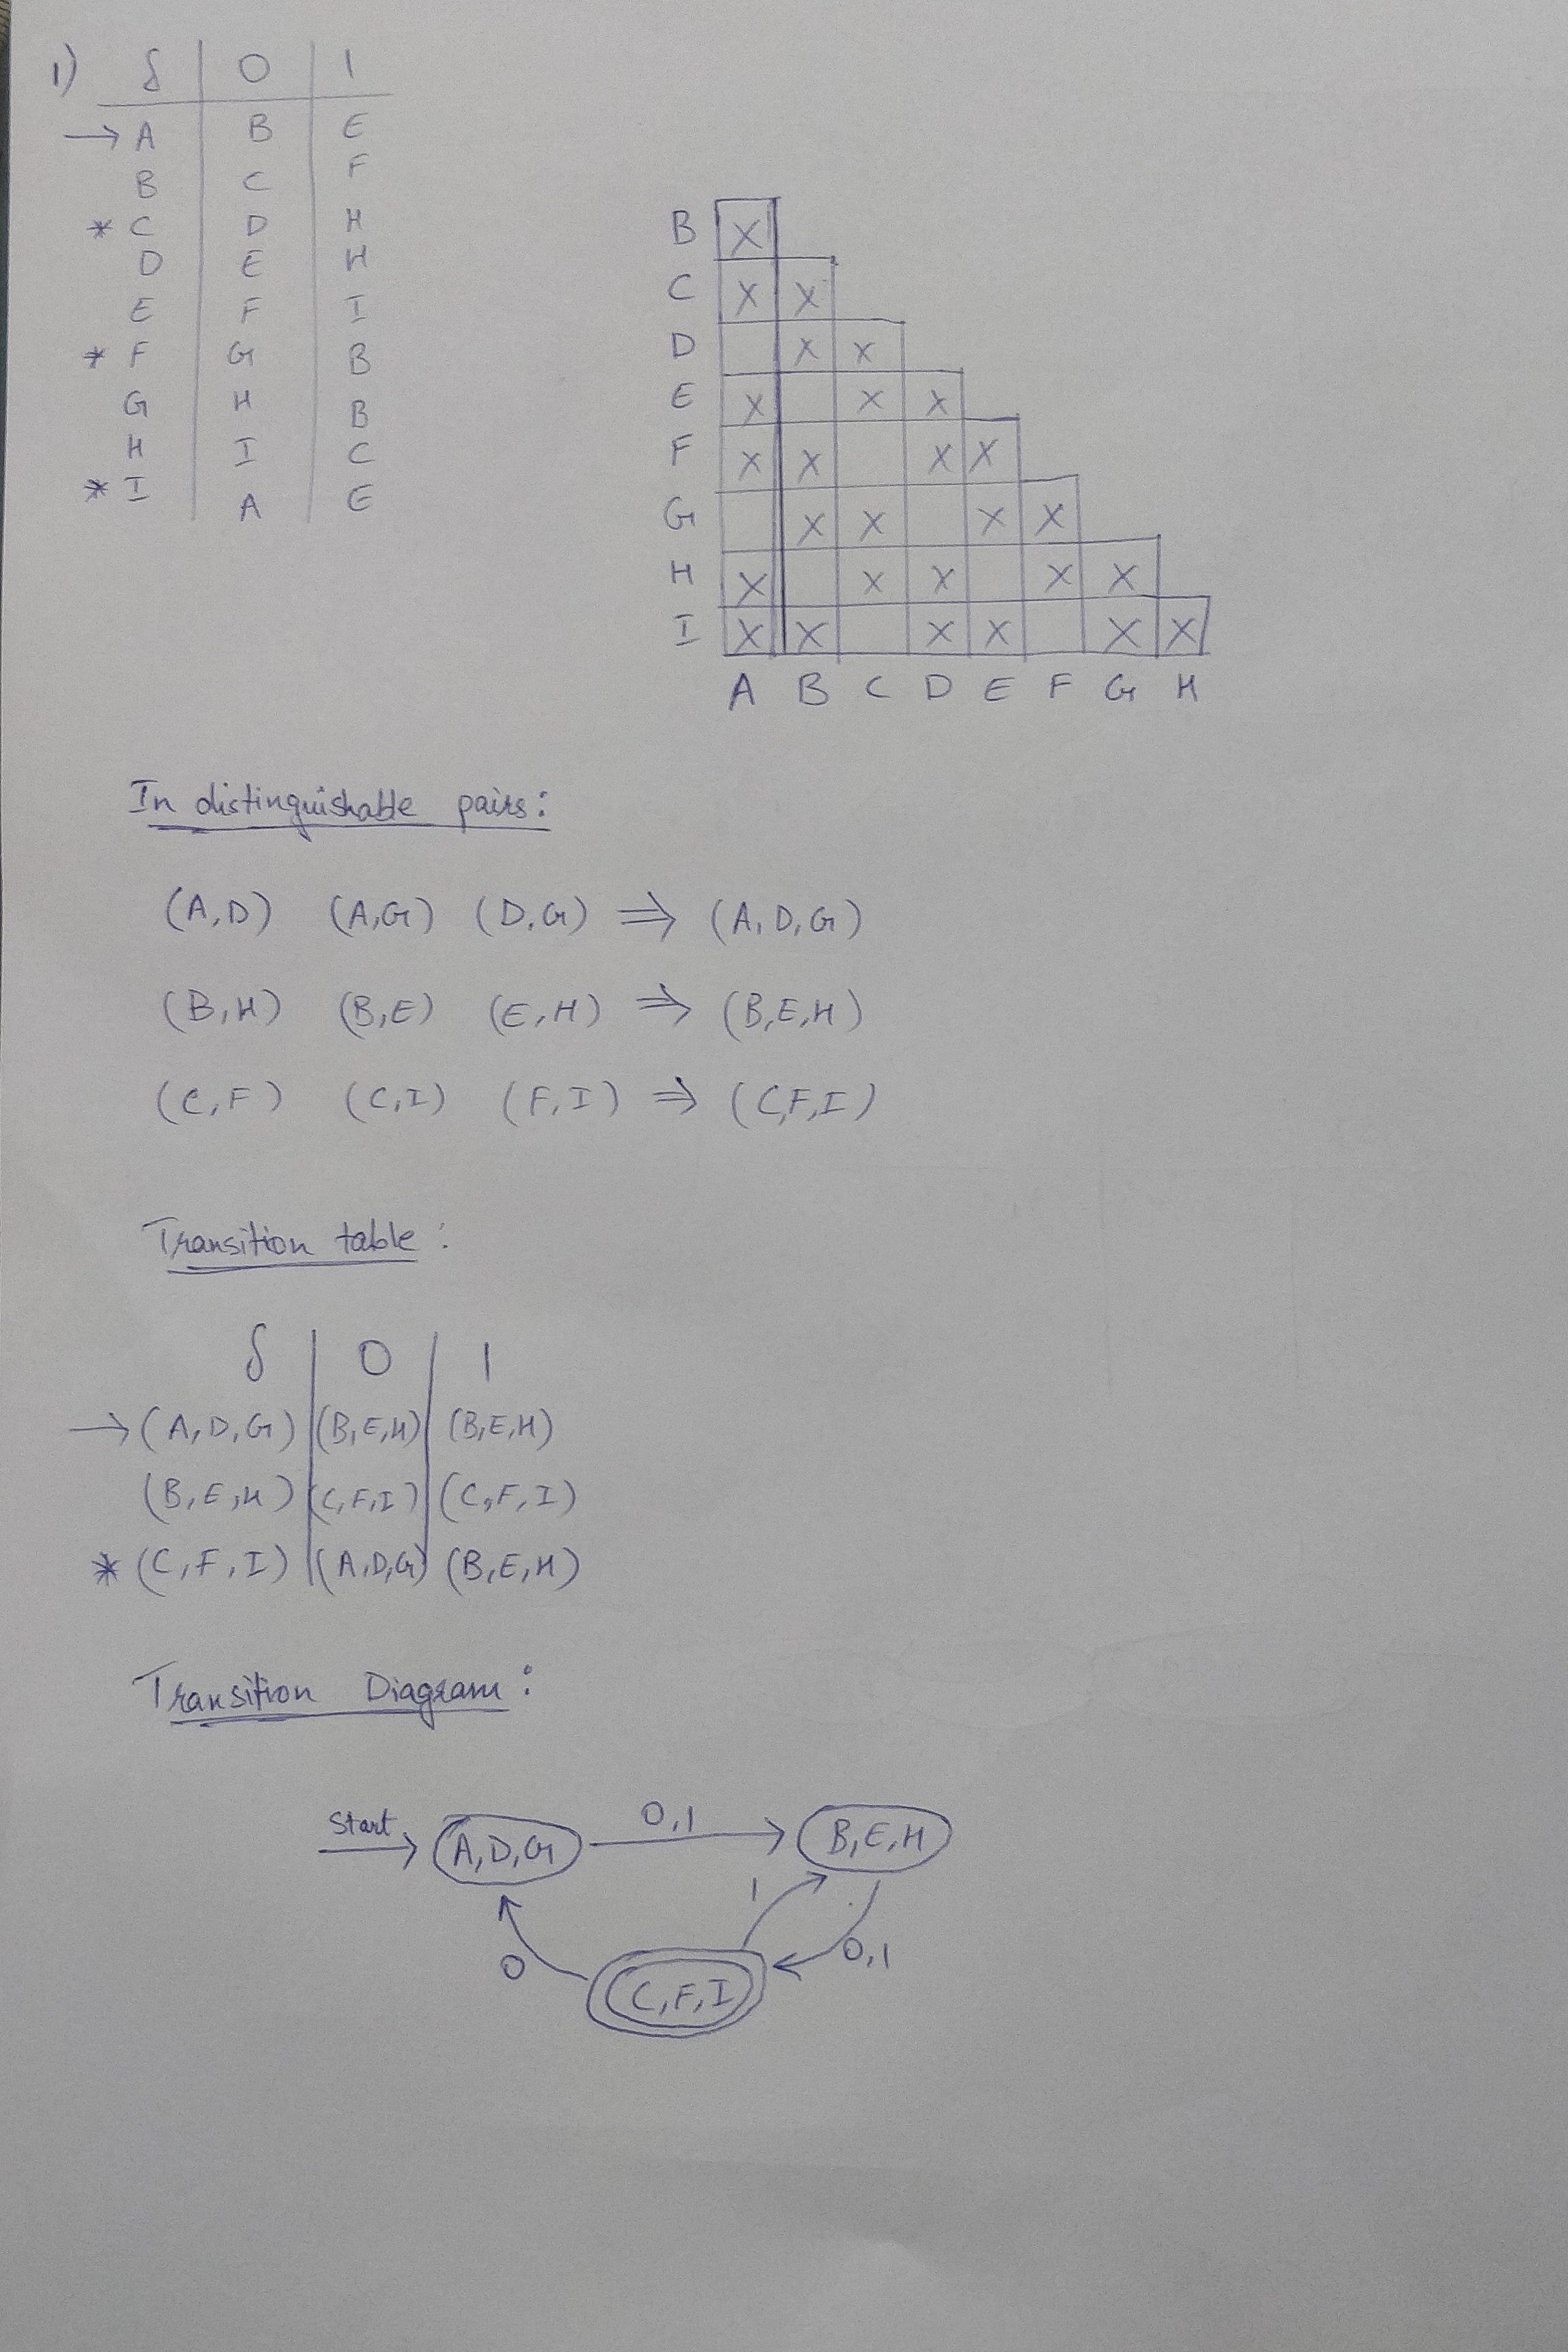 1) δ 0 1
→ A B E
B C F
* C D H
D E H
E F I
* F G B
G H B
H I C
* I A E
B X
C X X
D X X
E X X X
F X X X X
G X X X X
H X X X X X
I X X X X X X
A B C D E F G H
In distinguishable pairs:
(A,D) (A,G) (D,G) ⇒ (A,D,G)
(B,H) (B,E) (E,H) ⇒ (B,E,H)
(C,F) (C,I) (F,I) ⇒ (C,F,I)
Transition table:
δ 0 1
→ (A,D,G) (B,E,H) (B,E,H)
(B,E,H) (C,F,I) (C,F,I)
* (C,F,I) (A,D,G) (B,E,H)
Transition Diagram:
Start A,D,G 0,1 B,E,H
1
0 0,1
C,F,I